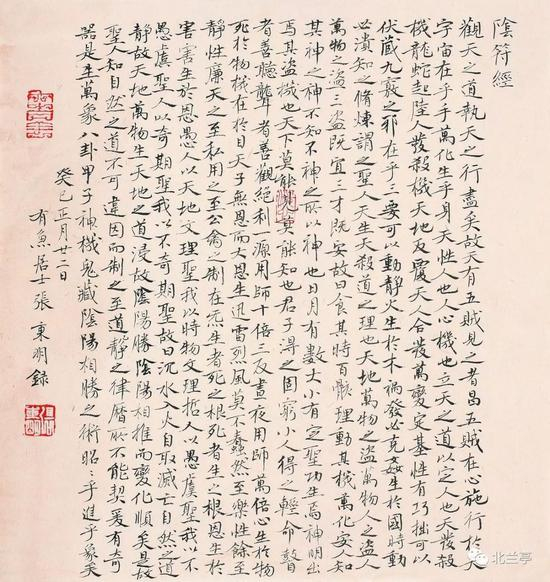 陰符經
觀天之道執天之行盡矣故天有五賊見之者昌五賊在心施行於天
宇宙在乎手萬化生乎身天性人也人心機也立天之道以定人也天發殺
機龍蛇起陸人發殺機天地反覆天人合發萬變定基性有巧拙可以
伏藏九竅之邪在乎三要可以動靜火生於木禍發必克姦生於國時動
必潰知之修煉謂之聖人天生天殺道之理也天地萬物之盜萬物人之盜人
萬物之盜三盜既宜三才既安故曰食其時百骸理動其機萬化安人知
其神之神不知不神之所以神也日月有數大小有定聖功生焉神明出
焉其盜機也天下莫能見莫能知也君子得之固窮小人得之輕命瞽
者善聽聾者善觀絕利一源用師十倍三反晝夜用師萬倍心生於物
死於物機在於目天子無恩而大恩生迅雷烈風莫不蠢然至樂性餘至
靜性廉天之至私用之至公禽之制在炁生者死之根死者生之根恩生於
害害生於恩愚人以天地文理聖我以時物文理哲人以愚虞聖我以不
愚虞聖人以奇期聖我以不奇期聖故曰沉水入火自取滅亡自然之道
靜故天地萬物生天地之道浸故陰陽勝陰陽相推而變化順矣是故
聖人知自然之道不可違因而制之至道靜之律曆所不能契爰有奇
器是生萬象八卦甲子神機鬼藏陰陽相勝之術昭〻乎進乎象矣
癸巳正月廿二日
有魚居士張東明錄
北兰亭